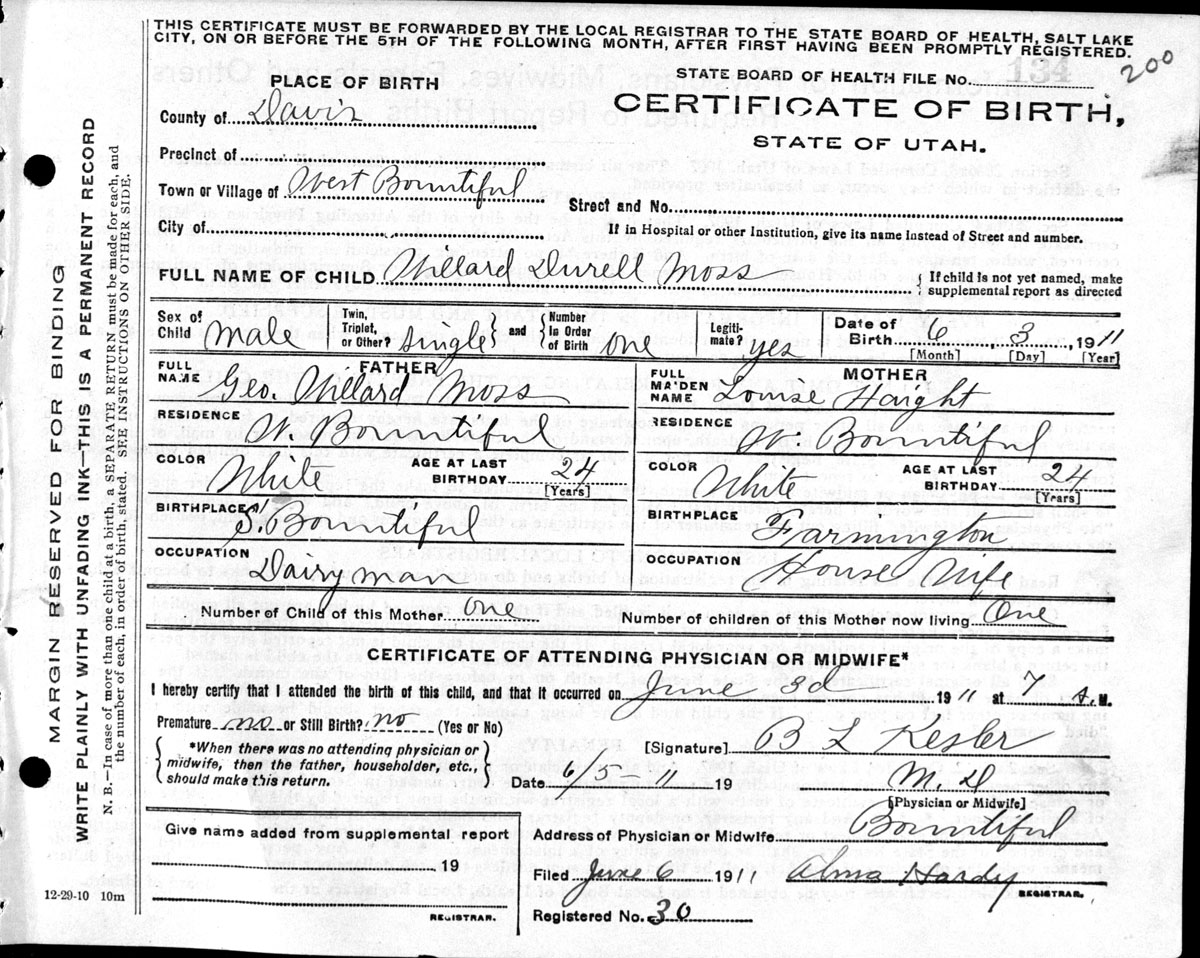 THIS CERTIFICATE MUST BE FORWARDED BY THE LOCAL REGISTRAR TO THE STATE BOARD OF HEALTH, SALT LAKE
CITY, ON OR BEFORE THE 5TH OF THE FOLLOWING MONTH, AFTER FIRST HAVING BEEN PROMPTLY REGISTERED.
PLACE OF BIRTH
STATE BOARD OF HEALTH FILE No. 134
200
County of Davis
CERTIFICATE OF BIRTH,
STATE OF UTAH.
Precinct of
Town or Village of West Bountiful
Street and No.
City of
If in Hospital or other Institution, give its name instead of Street and number.
FULL NAME OF CHILD Willard Durell Moss
{ If child is not yet named, make
supplemental report as directed
Sex of Child Male
Twin, Triplet, or Other? single } and { Number in Order of Birth one
Legitimate? yes
Date of Birth 6 3 1911
[Month] [Day] [Year]
FATHER
FULL NAME Geo. Willard Moss
RESIDENCE W. Bountiful
COLOR White AGE AT LAST BIRTHDAY 24
[Years]
BIRTHPLACE S. Bountiful
OCCUPATION Dairyman
MOTHER
FULL MAIDEN NAME Louise Haight
RESIDENCE W. Bountiful
COLOR White AGE AT LAST BIRTHDAY 24
[Years]
BIRTHPLACE Farmington
OCCUPATION House Wife
Number of Child of this Mother one
Number of children of this Mother now living One
CERTIFICATE OF ATTENDING PHYSICIAN OR MIDWIFE*
I hereby certify that I attended the birth of this child, and that it occurred on June 3d 1911 at 7 A.M.
Premature no or Still Birth? no (Yes or No)
{ *When there was no attending physician or
midwife, then the father, householder, etc.,
should make this return. }
[Signature] B L Kesler
Date 6/5-11 19 M. D
[Physician or Midwife]
Give name added from supplemental report
19
REGISTRAR.
Address of Physician or Midwife Bountiful
Filed June 6 1911 Alma Hardy
REGISTRAR.
Registered No. 30
12-29-10 10m
MARGIN RESERVED FOR BINDING
WRITE PLAINLY WITH UNFADING INK—THIS IS A PERMANENT RECORD
N. B.—In case of more than one child at a birth, a SEPARATE RETURN must be made for each, and
the number of each, in order of birth, stated. SEE INSTRUCTIONS ON OTHER SIDE.